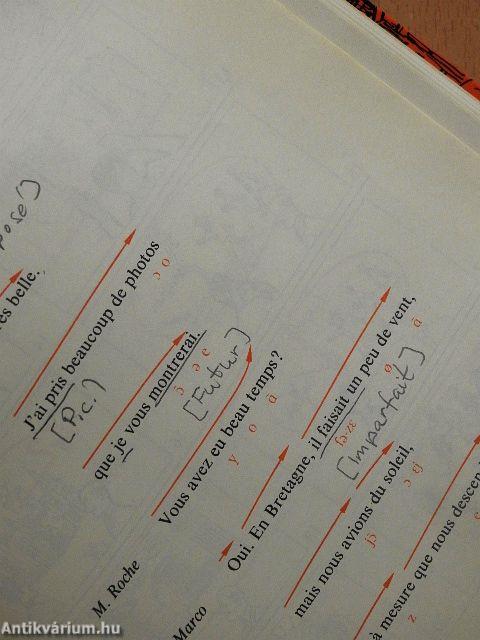 pose]
ès belle.
J'ai pris beaucoup de photos
ɔ o
[P.C.]
que je vous montrerai.
ɔ̃ ə e
[Futur]
M. Roche
Vous avez eu beau temps ?
y o ɑ̃
Marco
Oui. En Bretagne, il faisait un peu de vent,
fə-zɛ ø ɑ̃
[Imparfait]
mais nous avions du soleil,
jɔ̃ ɔ ɛj
a mesure que nous descen
z
Antikvárium.hu